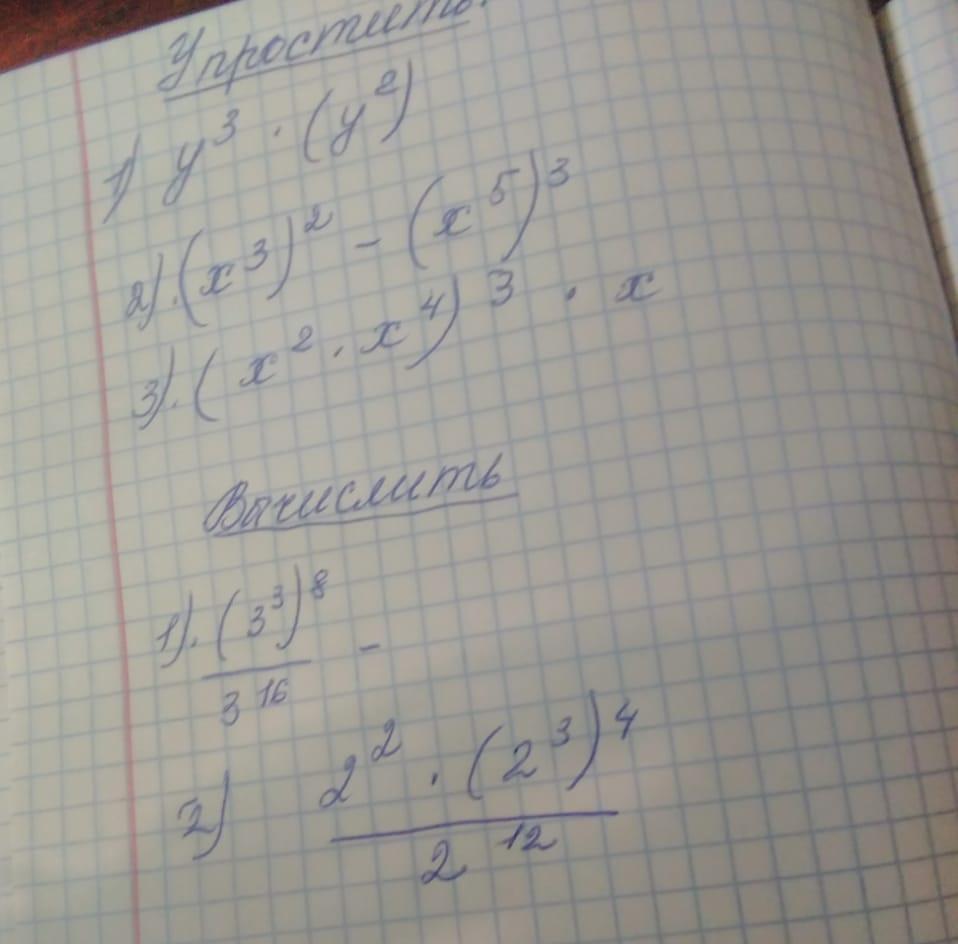 Упростить.
1) y³ · (y²)
2). (x³)² - (x⁵)³
3). (x² · x⁴)³ · x
Вычислить
1). (3³)⁸ / 3¹⁶ -
2) 2² · (2³)⁴ / 2¹²